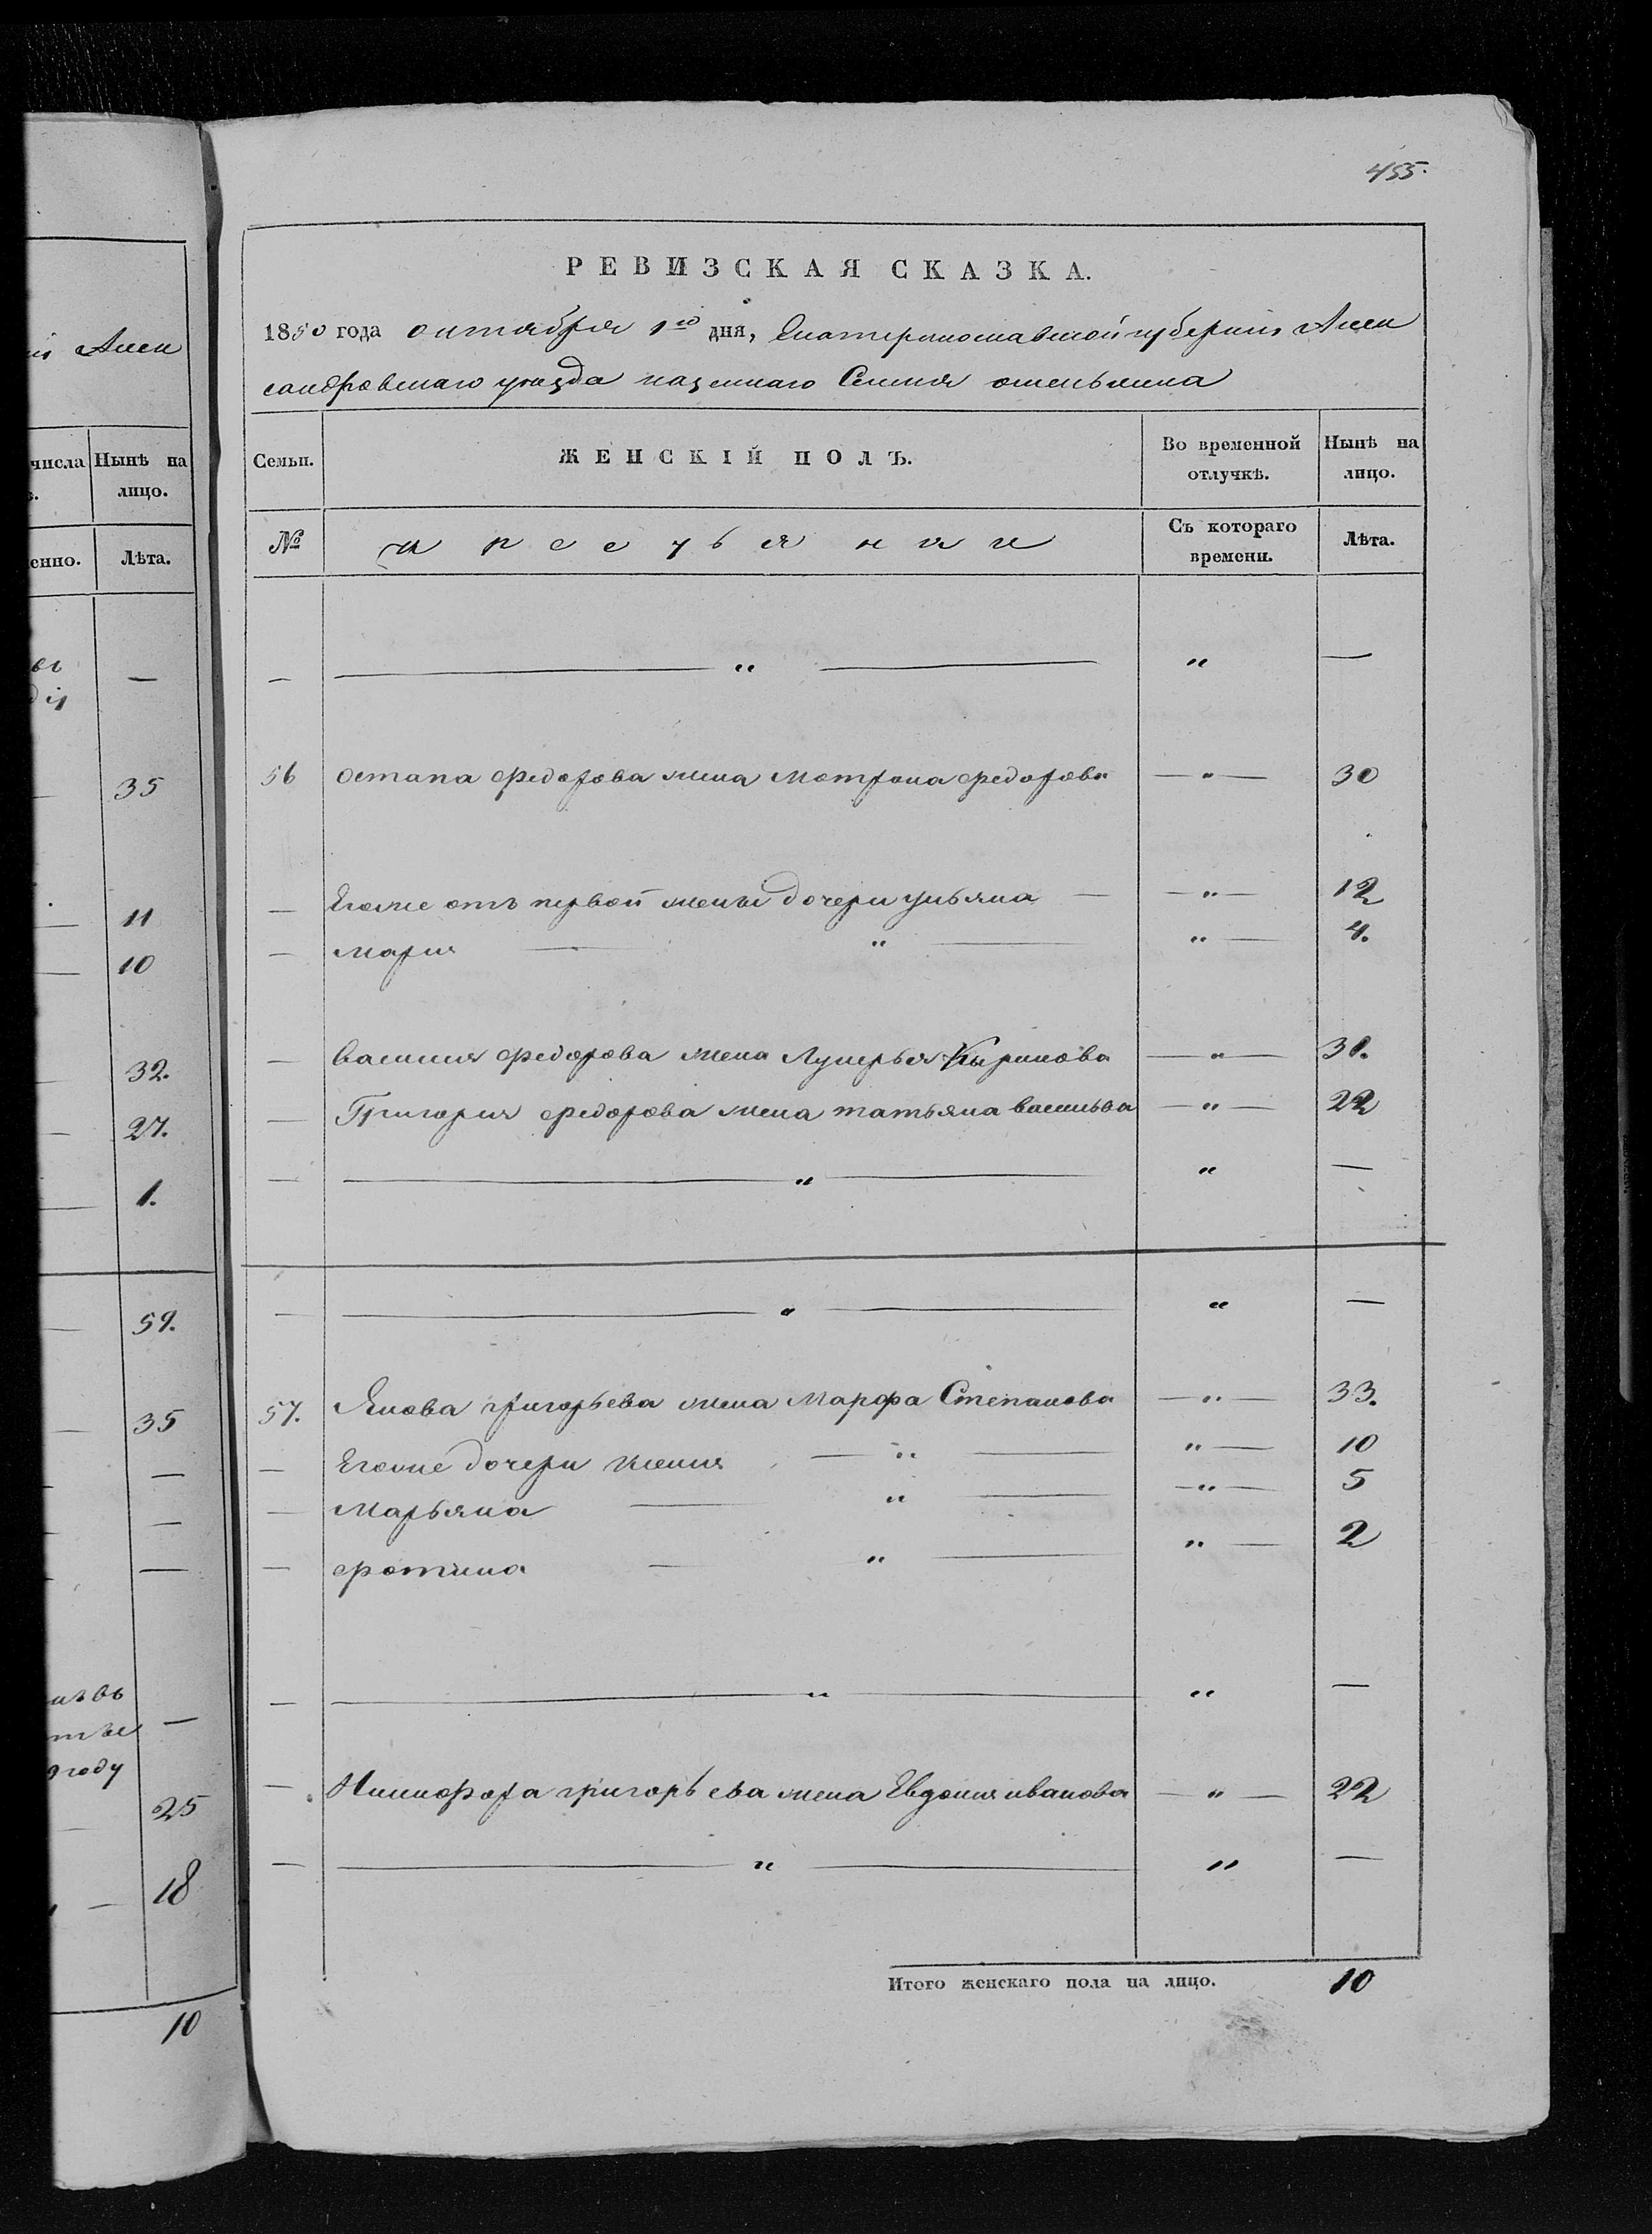 455.
РЕВИЗСКАЯ СКАЗКА.
1850 года октября 1го дня, Екатеринославской губернии Алек
сандровскаго уезда казеннаго Селения
Семьи.
ЖЕНСКІЙ ПОЛЪ.
Во временной отлучкѣ.
Нынѣ на лицо.
№
крестьянки
Съ котораго времени.
Лѣта.
— — " — " —
56 Остапа федорова жена Мотрона федорова — " — 30
— Егоже отъ первой жены дочери ульяна — — " — 12
— Мария — " — " — 4.
— василия федорова жена Лукерья Кирикова — " — 31.
— Григория федорова жена татьяна василъва — " — 22
— — " — " —
— — " — " —
57. Якова григорьева жена Марфа Степанова — " — 33.
— Егоже дочери ксения — " — " — 10
— Марьяна — " — — " — 5
— фотина — " — " — 2
— — " — " —
— Никифора григорьева жена Евдокия иванова — " — 22
— — " — " —
Итого женскаго пола на лицо. 10
Алек
числа
Нынѣ на лицо.
Лѣта.
—
35
11
10
32.
27.
1.
59.
35
—
—
—
году
—
25
18
10